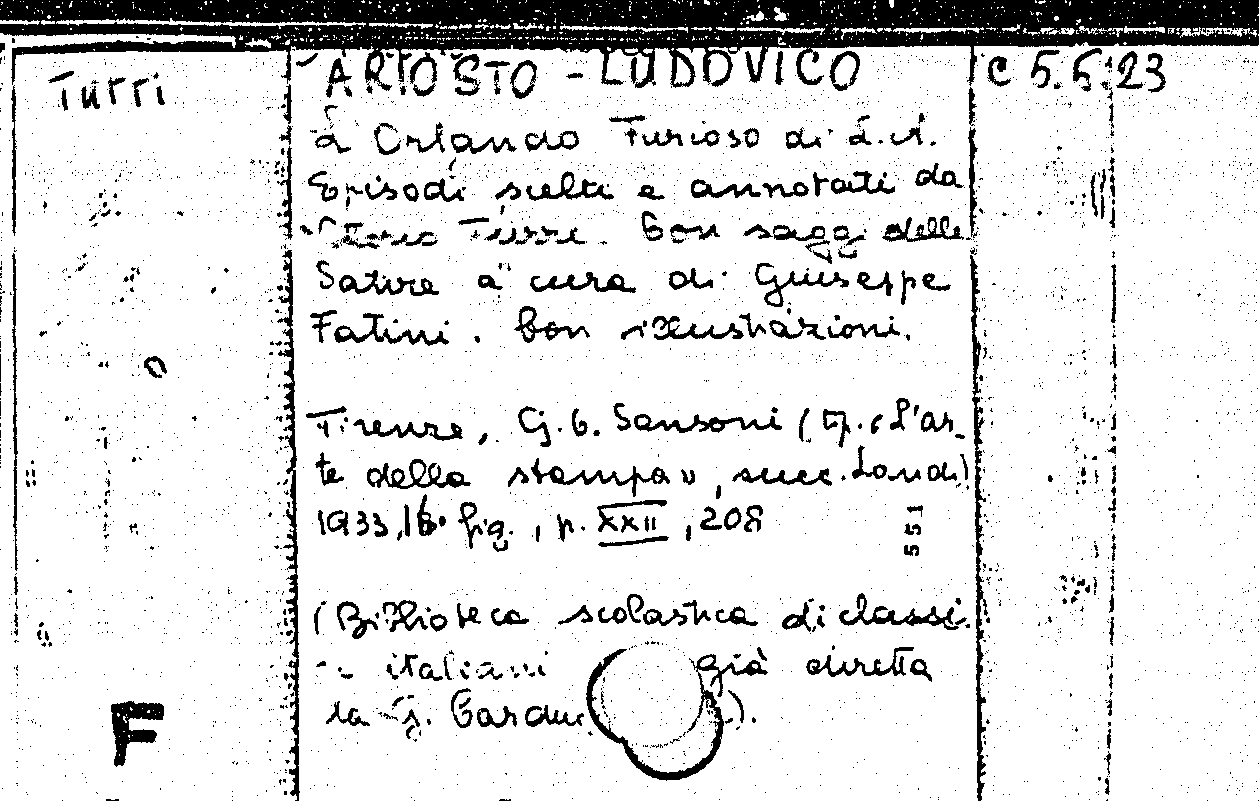 Turri
ARIOSTO - LUDOVICO
C 5.5.23
L'Orlando Furioso di L.A.
Episodi scelti e annotati da
Vittorio Turri. Con saggi delle
Satire a cura di Giuseppe
Fatini. Con illustrazioni.
Firenze, G.C. Sansoni (tip. "L'ar-
te della stampa", succ. Landi)
1933, 16° fig., p. XXII, 208
551
(Biblioteca scolastica di classi-
ci italiani già diretta
da G. Carducci).
F